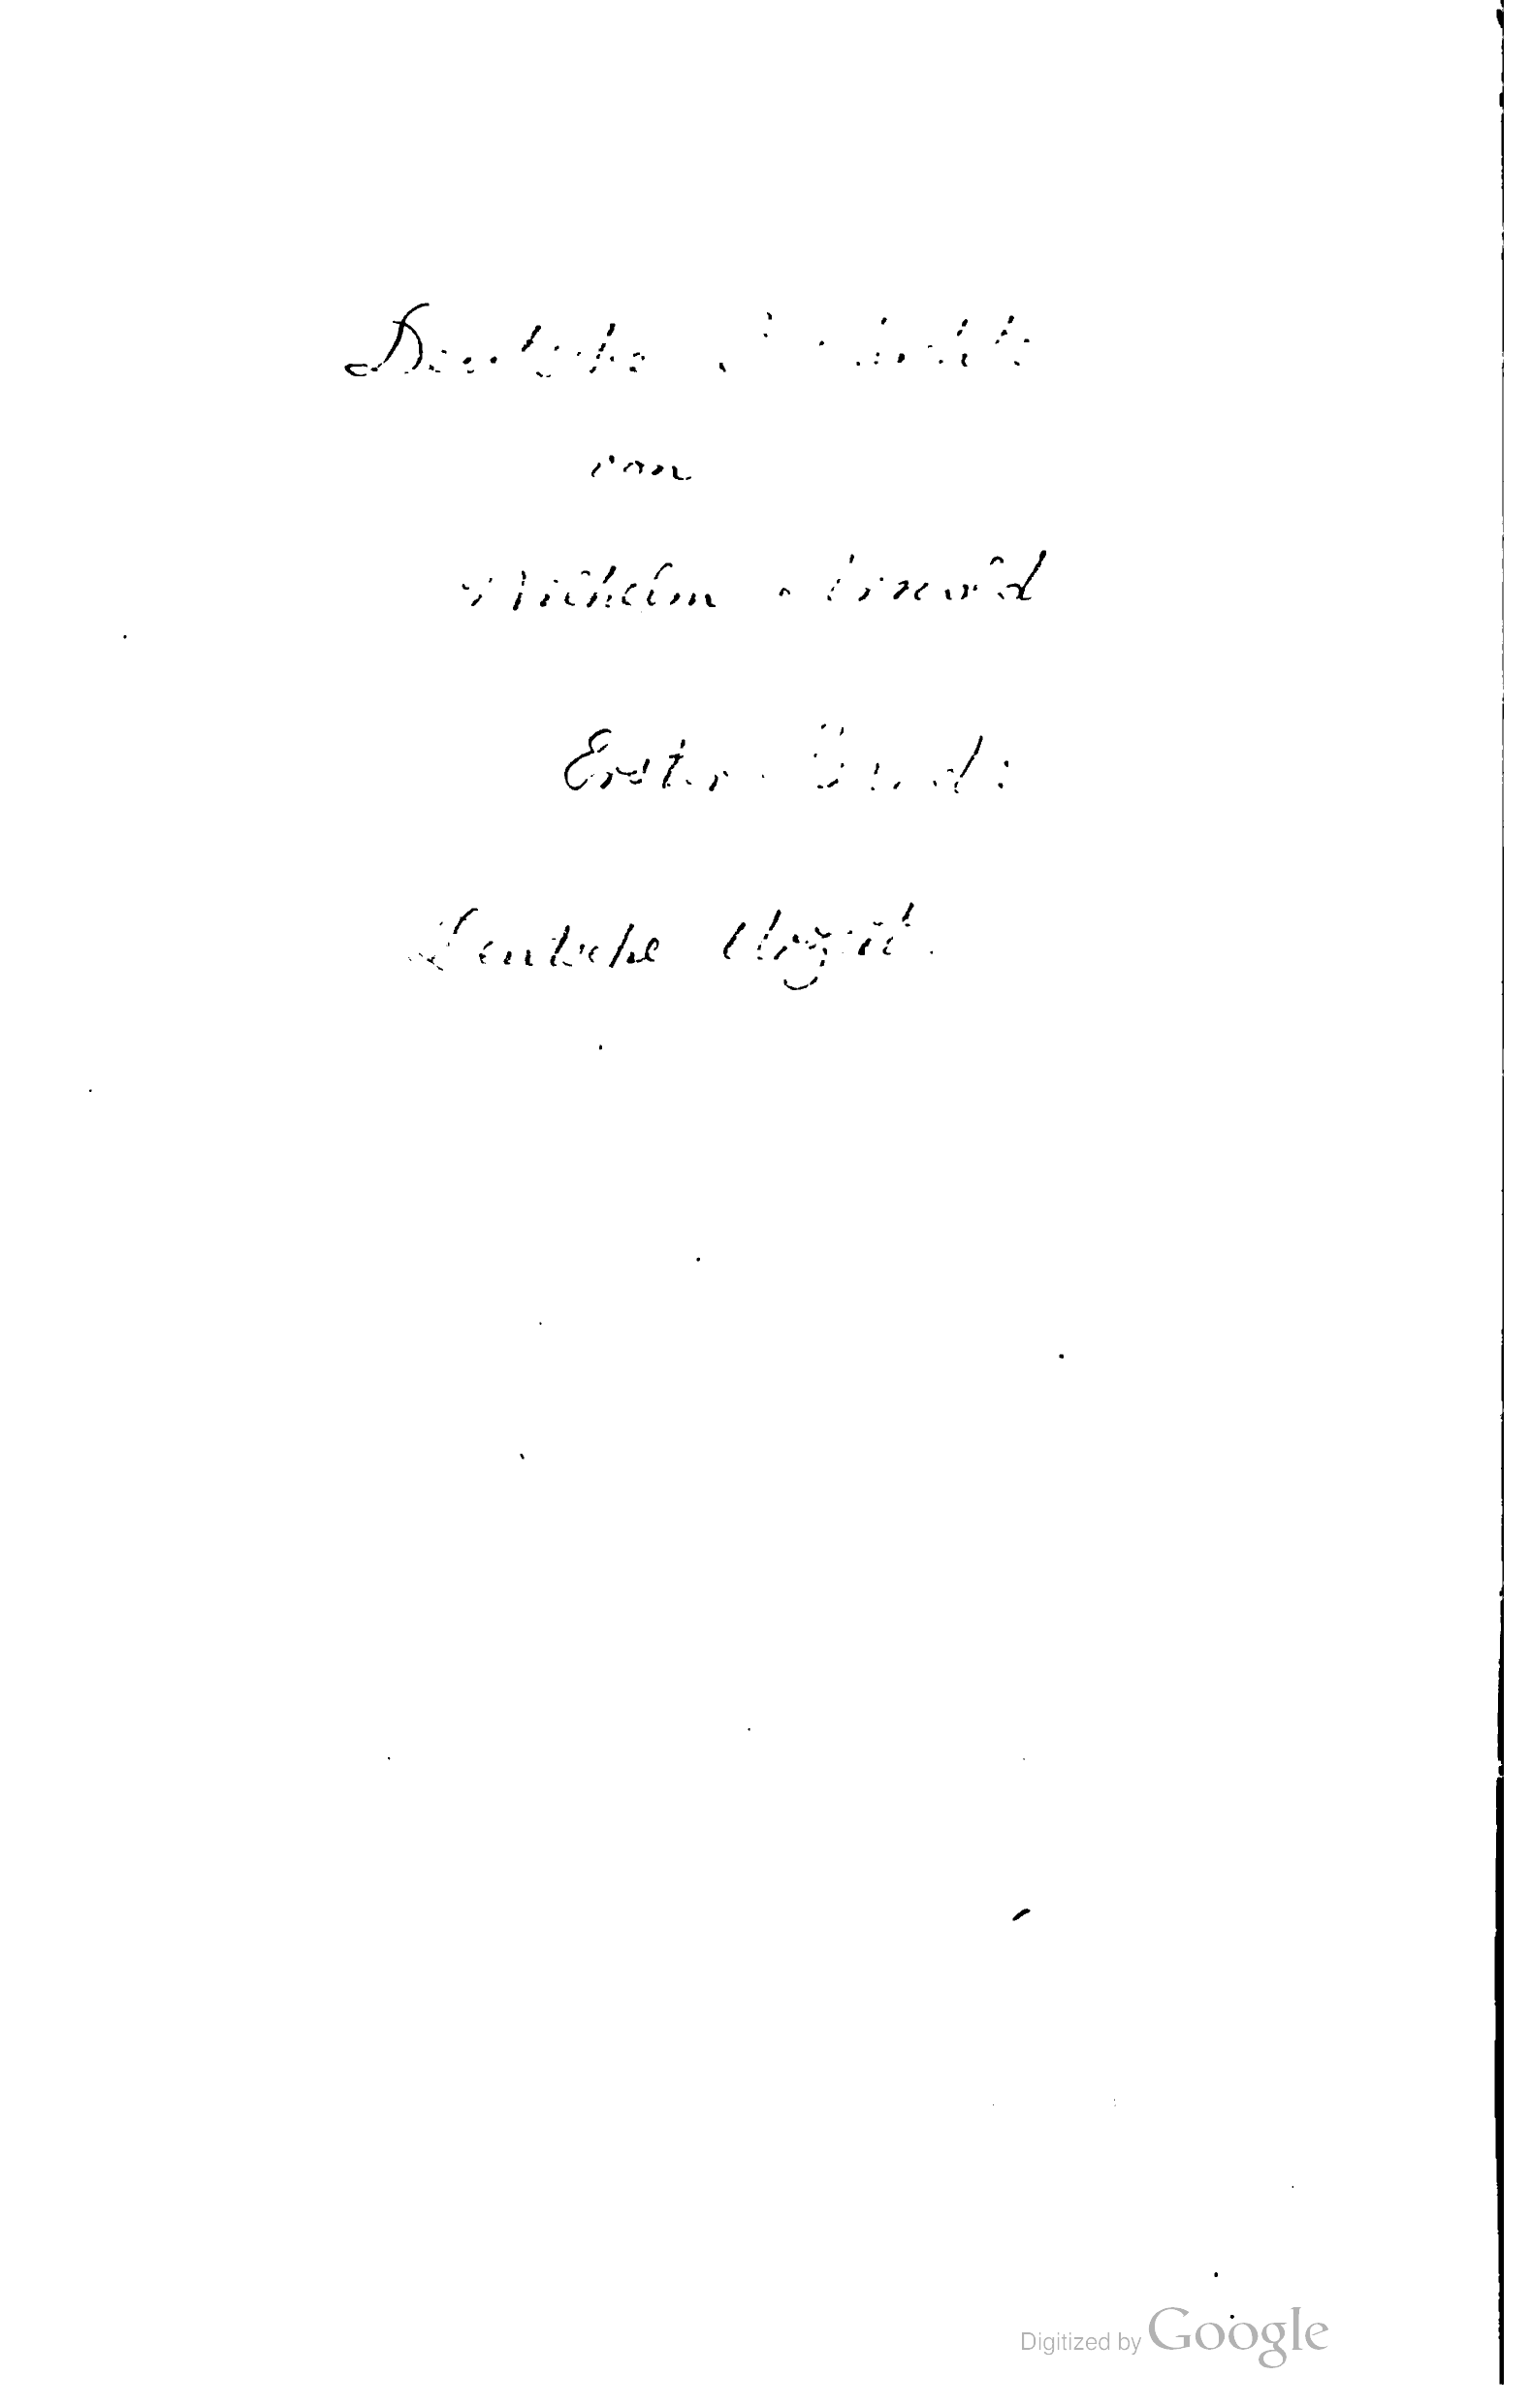 Deutsche Geschichte
von
Wilhelm Arnold
Erster Band:
Deutsche Urzeit.
Digitized by Google